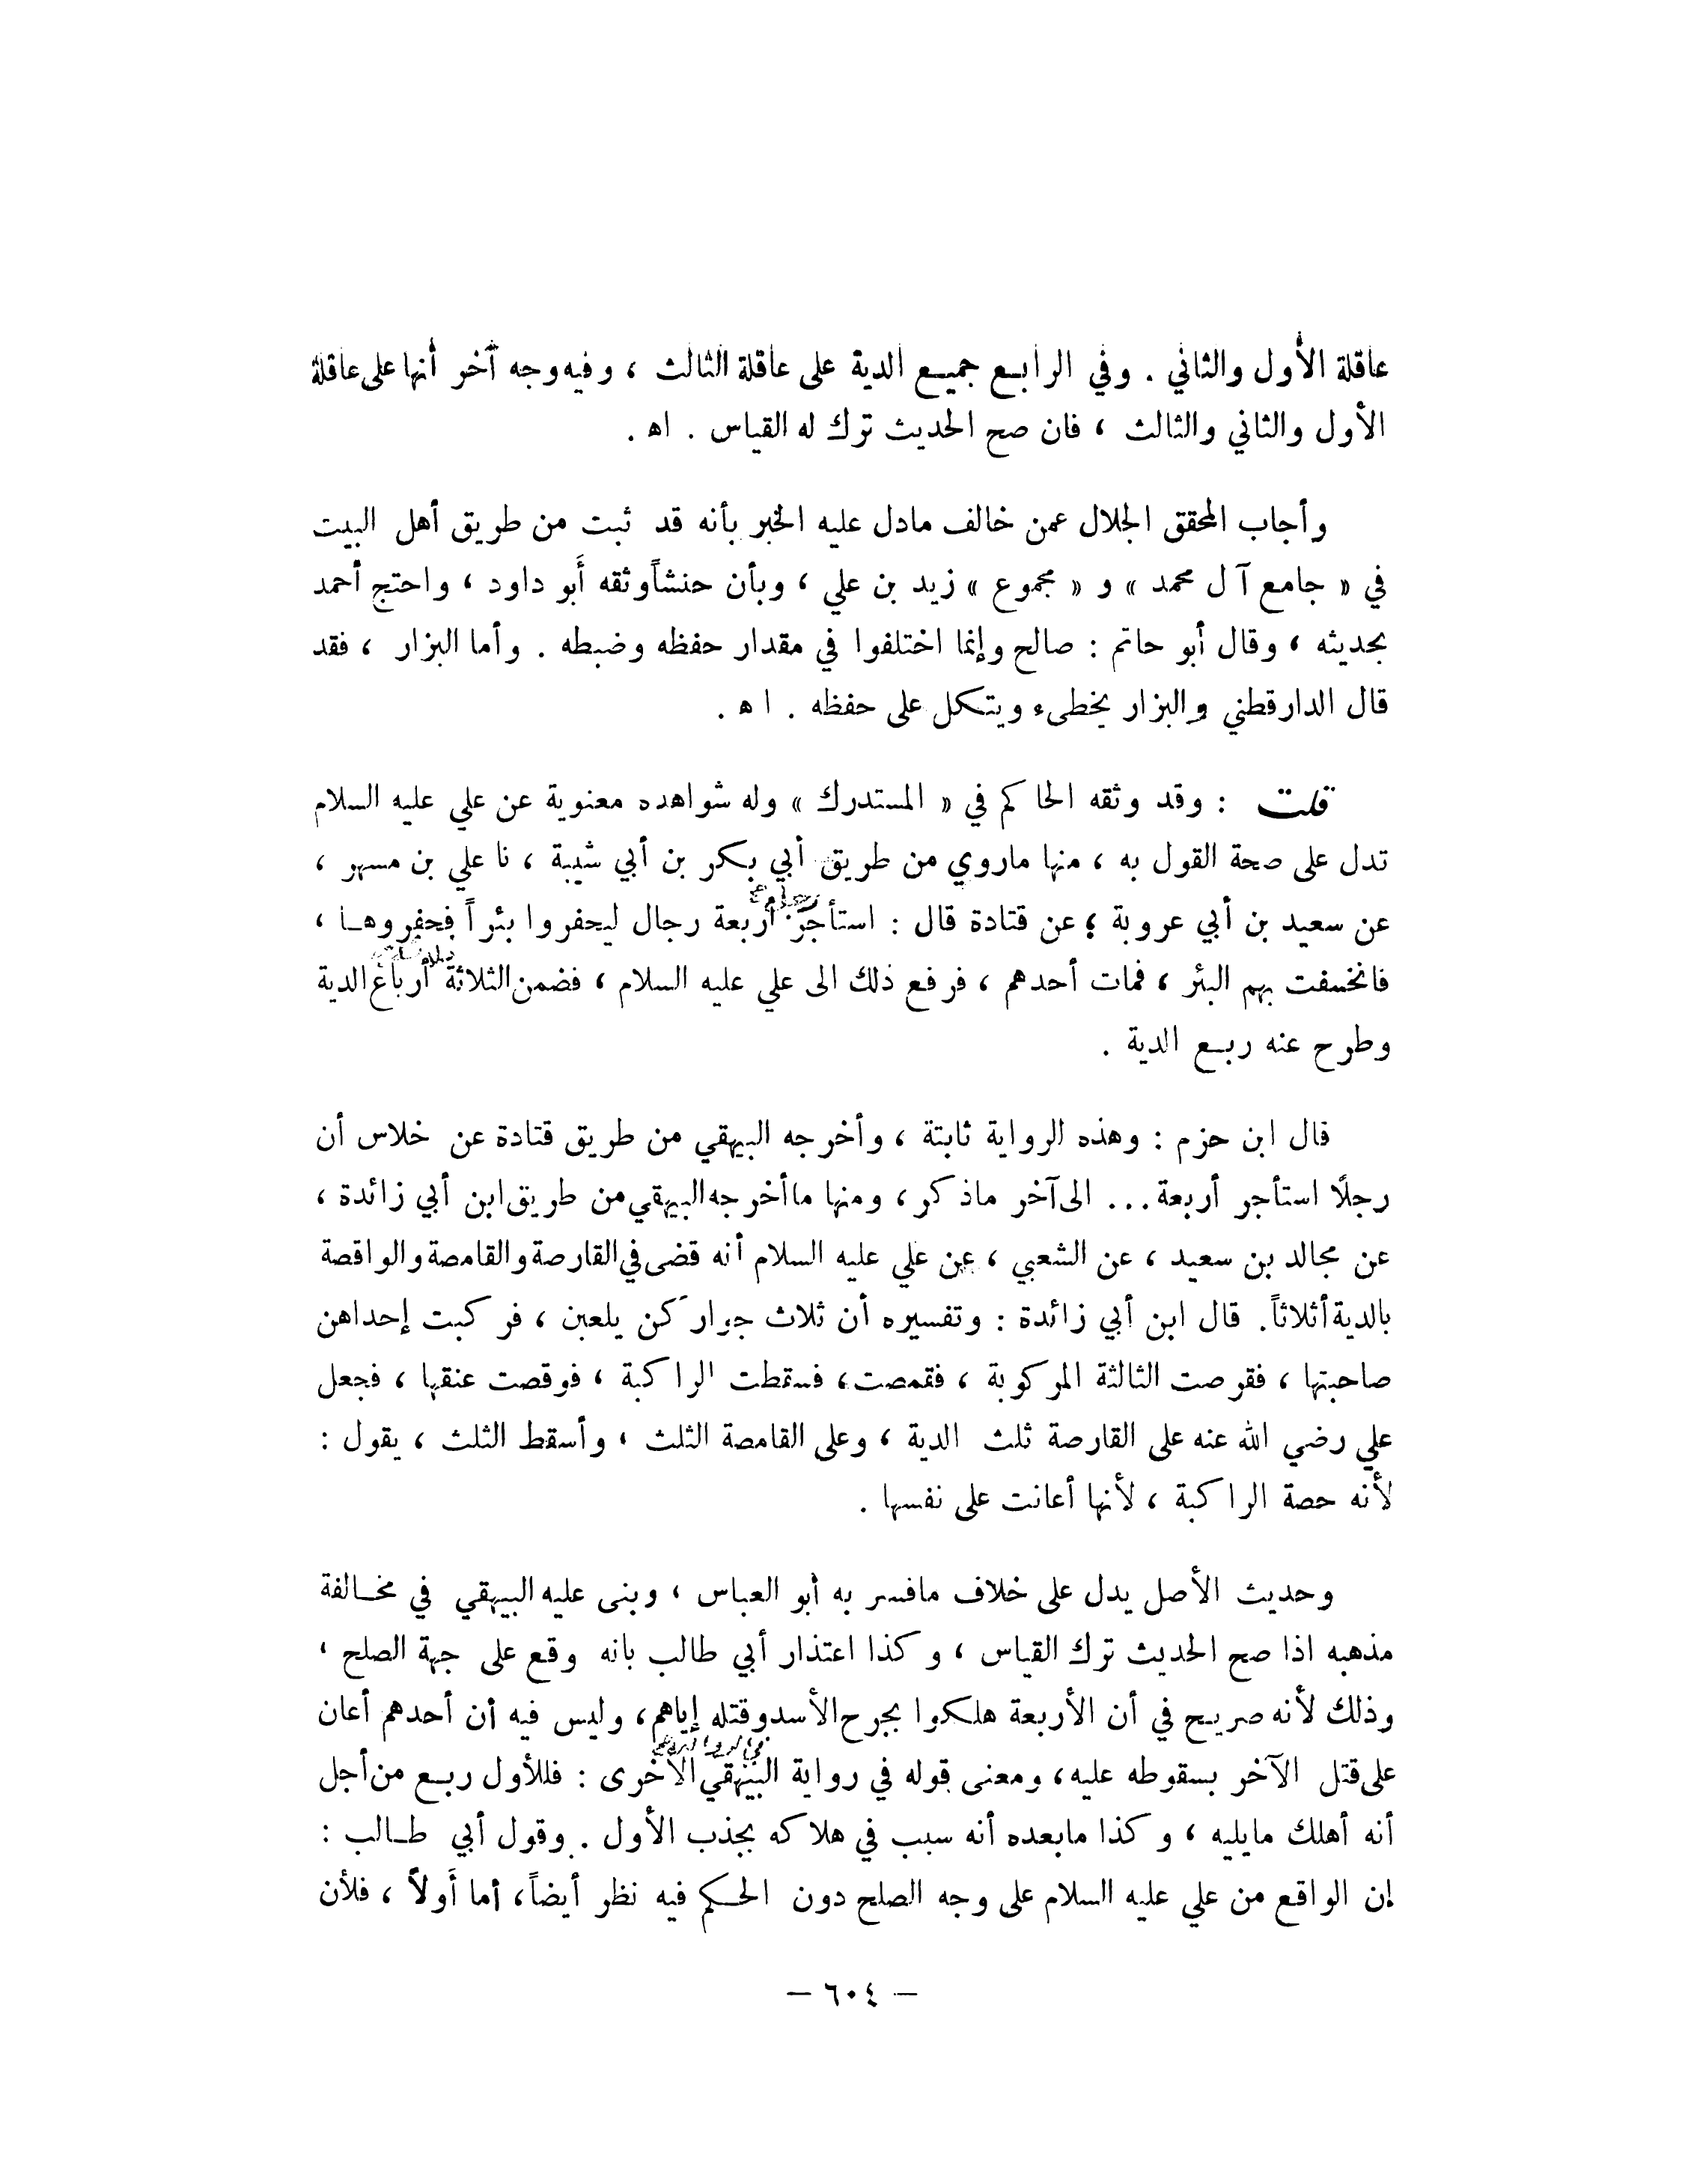 عاقلة الأول والثاني . وفي الرابع جميع الدية على عاقلة الثالث ، وفيه وجه آخر أنها على عاقلة
الأول والثاني والثالث ، فان صح الحديث ترك له القياس . اه .
وأجاب المحقق الجلال عمن خالف مادل عليه الخبر بأنه قد ثبت من طريق أهل البيت
في « جامع آل محمد » و « مجموع » زيد بن علي ، وبأن حنشاً وثقه أبو داود ، واحتج أحمد
بحديثه ، وقال أبو حاتم : صالح وإنما اختلفوا في مقدار حفظه وضبطه . وأما البزار ، فقد
قال الدارقطني والبزار يخطىء ويتكل على حفظه . اه .
قلت : وقد وثقه الحاكم في « المستدرك » وله شواهده معنوية عن علي عليه السلام
تدل على صحة القول به ، منها ماروي من طريق أبي بكر بن أبي شيبة ، نا علي بن مسهر ،
عن سعيد بن أبي عروبة ؛ عن قتادة قال : استأجر أربعة رجال ليحفروا بئراً فحفروها ،
فانخسفت بهم البئر ، فمات أحدهم ، فرفع ذلك الى علي عليه السلام ، فضمن الثلاثة أرباع الدية
وطرح عنه ربع الدية .
قال ابن حزم : وهذه الرواية ثابتة ، وأخرجه البيهقي من طريق قتادة عن خلاس أن
رجلًا استأجر أربعة ... الى آخر ماذكر ، ومنها ما أخرجه البيهقي من طريق ابن أبي زائدة ،
عن مجالد بن سعيد ، عن الشعبي ، عن علي عليه السلام أنه قضى في القارصة والقامصة والواقصة
بالدية أثلاثاً . قال ابن أبي زائدة : وتفسيره أن ثلاث جوار كن يلعبن ، فركبت إحداهن
صاحبتها ، فقرصت الثالثة المركوبة ، فقمصت ، فسقطت الراكبة ، فوقصت عنقها ، فجعل
علي رضي الله عنه على القارصة ثلث الدية ، وعلى القامصة الثلث ، وأسقط الثلث ، يقول :
لأنه حصة الراكبة ، لأنها أعانت على نفسها .
وحديث الأصل يدل على خلاف مافسر به أبو العباس ، وبنى عليه البيهقي في مخالفة
مذهبه اذا صح الحديث ترك القياس ، وكذا اعتذار أبي طالب بانه وقع على جهة الصلح ،
وذلك لأنه صريح في أن الأربعة هلكوا بجرح الأسد وقتله إياهم ، وليس فيه أن أحدهم أعان
على قتل الآخر بسقوطه عليه ، ومعنى قوله في رواية البيهقي الأخرى : فللأول ربع من أجل
أنه أهلك مايليه ، وكذا مابعده أنه سبب في هلاكه بجذب الأول . وقول أبي طالب :
إن الواقع من علي عليه السلام على وجه الصلح دون الحكم فيه نظر أيضاً ، أما أولاً ، فلأن
— ٦٠٤ —